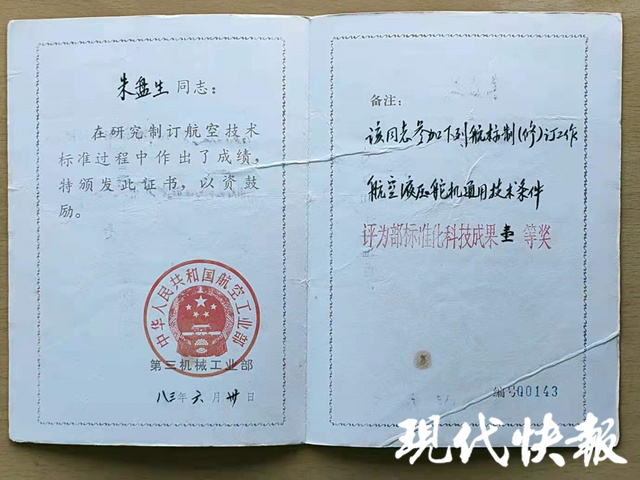 朱盘生同志：
在研究制订航空技术
标准过程中作出了成绩，
特颁发此证书，以资鼓
励。
中华人民共和国航空工业部
第三机械工业部
八三年六月卅日
备注：
该同志参加下列航标制(修)订工作
航空液压舵机通用技术条件
评为部标准化科技成果 等奖
编号00143
现代快報